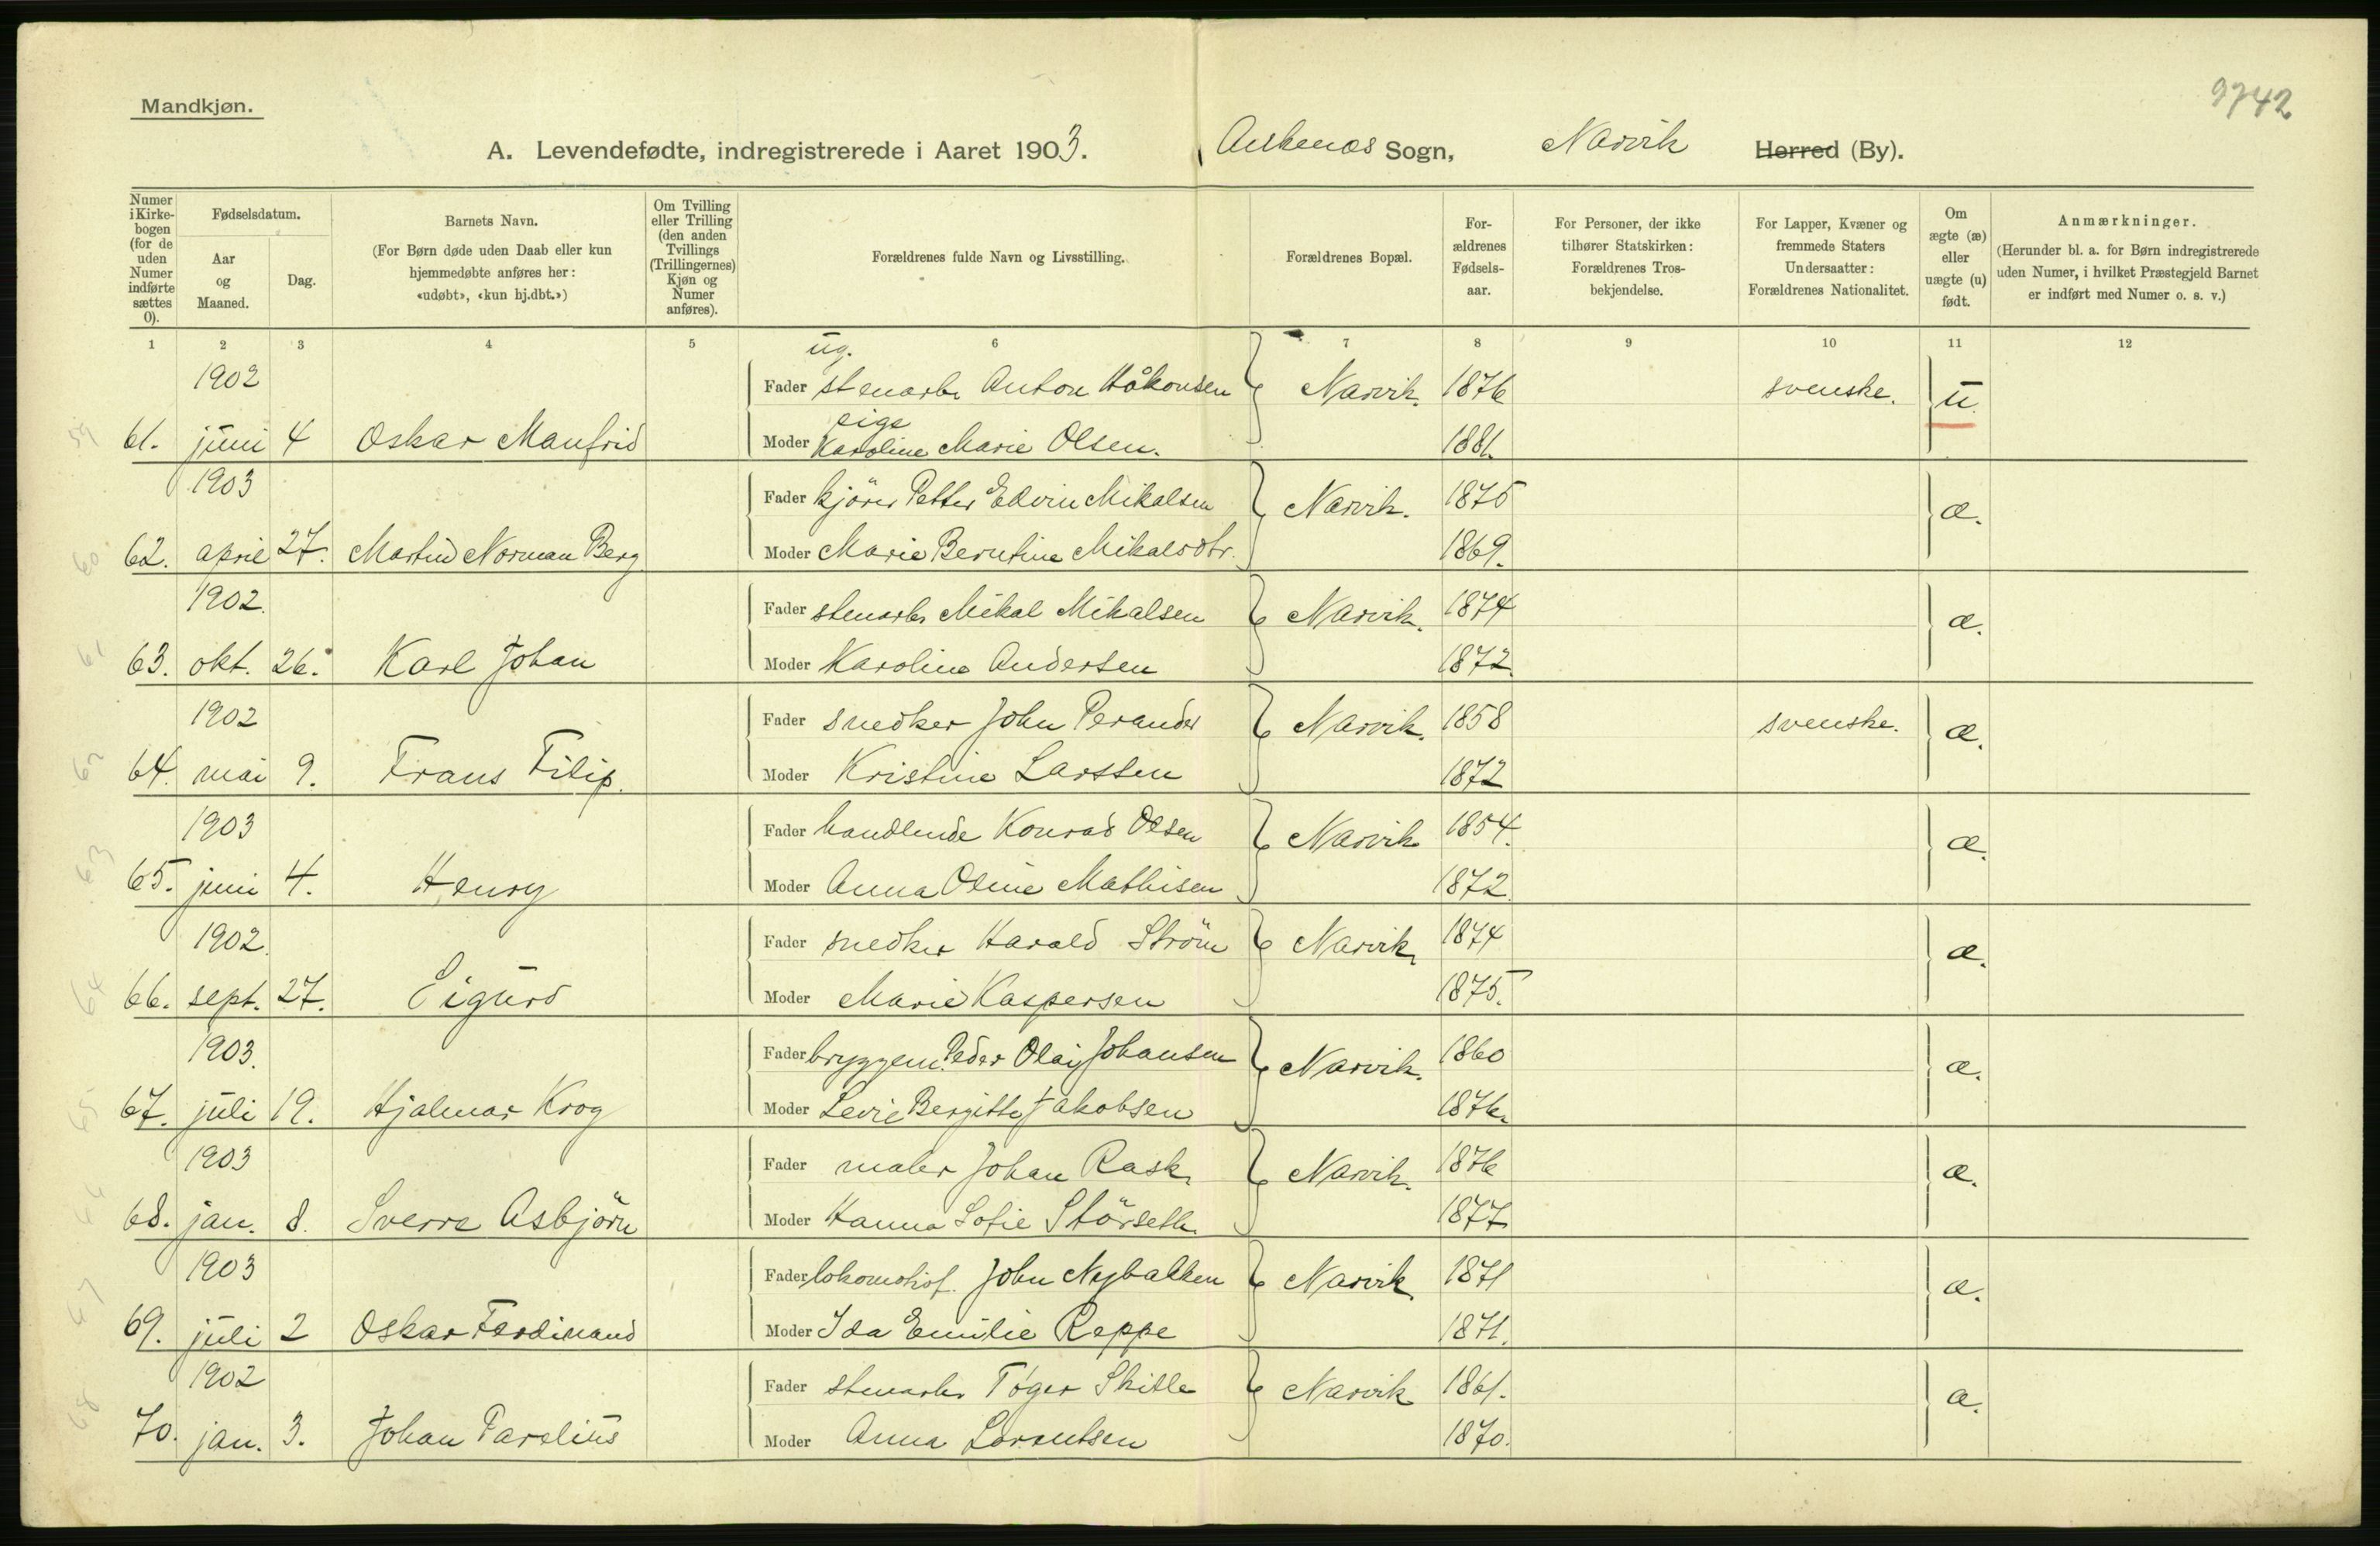 9742
Mandkjøn.
A. Levendefødte, indregistrerede i Aaret 1903. Ankenes Sogn, Narvik Herred (By).
Numer i Kirkebogen (for de uden Numer indførte sættes 0).
Fødselsdatum.
Aar og Maaned.
Dag.
Barnets Navn.
(For Børn døde uden Daab eller kun hjemmedøbte anføres her: «udøbt», «kun hj.dbt.»)
Om Tvilling eller Trilling (den anden Tvillings (Trillingernes) Kjøn og Numer anføres).
Forældrenes fulde Navn og Livsstilling.
Forældrenes Bopæl.
Forældrenes Fødselsaar.
For Personer, der ikke tilhører Statskirken: Forældrenes Trosbekjendelse.
For Lapper, Kvæner og fremmede Staters Undersaatter: Forældrenes Nationalitet.
Om ægte (æ) eller uægte (u) født.
Anmærkninger.
(Herunder bl. a. for Børn indregistrerede uden Numer, i hvilket Præstegjeld Barnet er indført med Numer o. s. v.)
1 2 3 4 5 6 7 8 9 10 11 12
ug.
1902 Fader stenarb. Anton Håkonsen Narvik. 1876 svenske. u.
pige
59 61. juni 4 Oskar Manfrid Moder Karoline Marie Olsen. 1881.
1903 Fader kjörer Petter Edvin Mikalsen Narvik. 1875 æ.
60 62. april 27. Martin Norman Berg Moder Marie Berntine Mikalsdtr. 1869.
1902. Fader stenarb. Mikal Mikalsen Narvik. 1874 æ.
61 63. okt. 26. Karl Johan Moder Karoline Andersen 1872.
1902 Fader snedker John Perander Narvik. 1858 svenske. æ.
62 64. mai 9. Frans Filip. Moder Kristine Larssen 1872
1903 Fader handlende Konrad Olsen Narvik 1854. æ.
63 65. juni 4. Henry Moder Anna Oline Mathisen 1872.
1902. Fader snedker Harald Ström Narvik 1874 æ.
64 66. sept. 27. Sigurd Moder Marie Kaspersen 1875.
1903. Fader bryggem. Peder Olai Johansen Narvik. 1860 æ.
65 67. juli 19. Hjalmar Krog Moder Bergitte Jakobsen 1876.
1903 Fader maler Johan Rask Narvik. 1876 æ.
66 68. jan. 8. Sverre Asbjörn Moder Hanna Sofie Störseth 1877
1903 Fader lokomotivf. John Nybakken Narvik 1871 æ.
67 69. juli 2 Oskar Ferdinand Moder Ida Emilie Reppe 1871.
1902 Fader stenarb. Töger Skille Narvik 1861. æ.
68 70. jan. 3. Johan Parelius Moder Anna Lorentsen 1870.